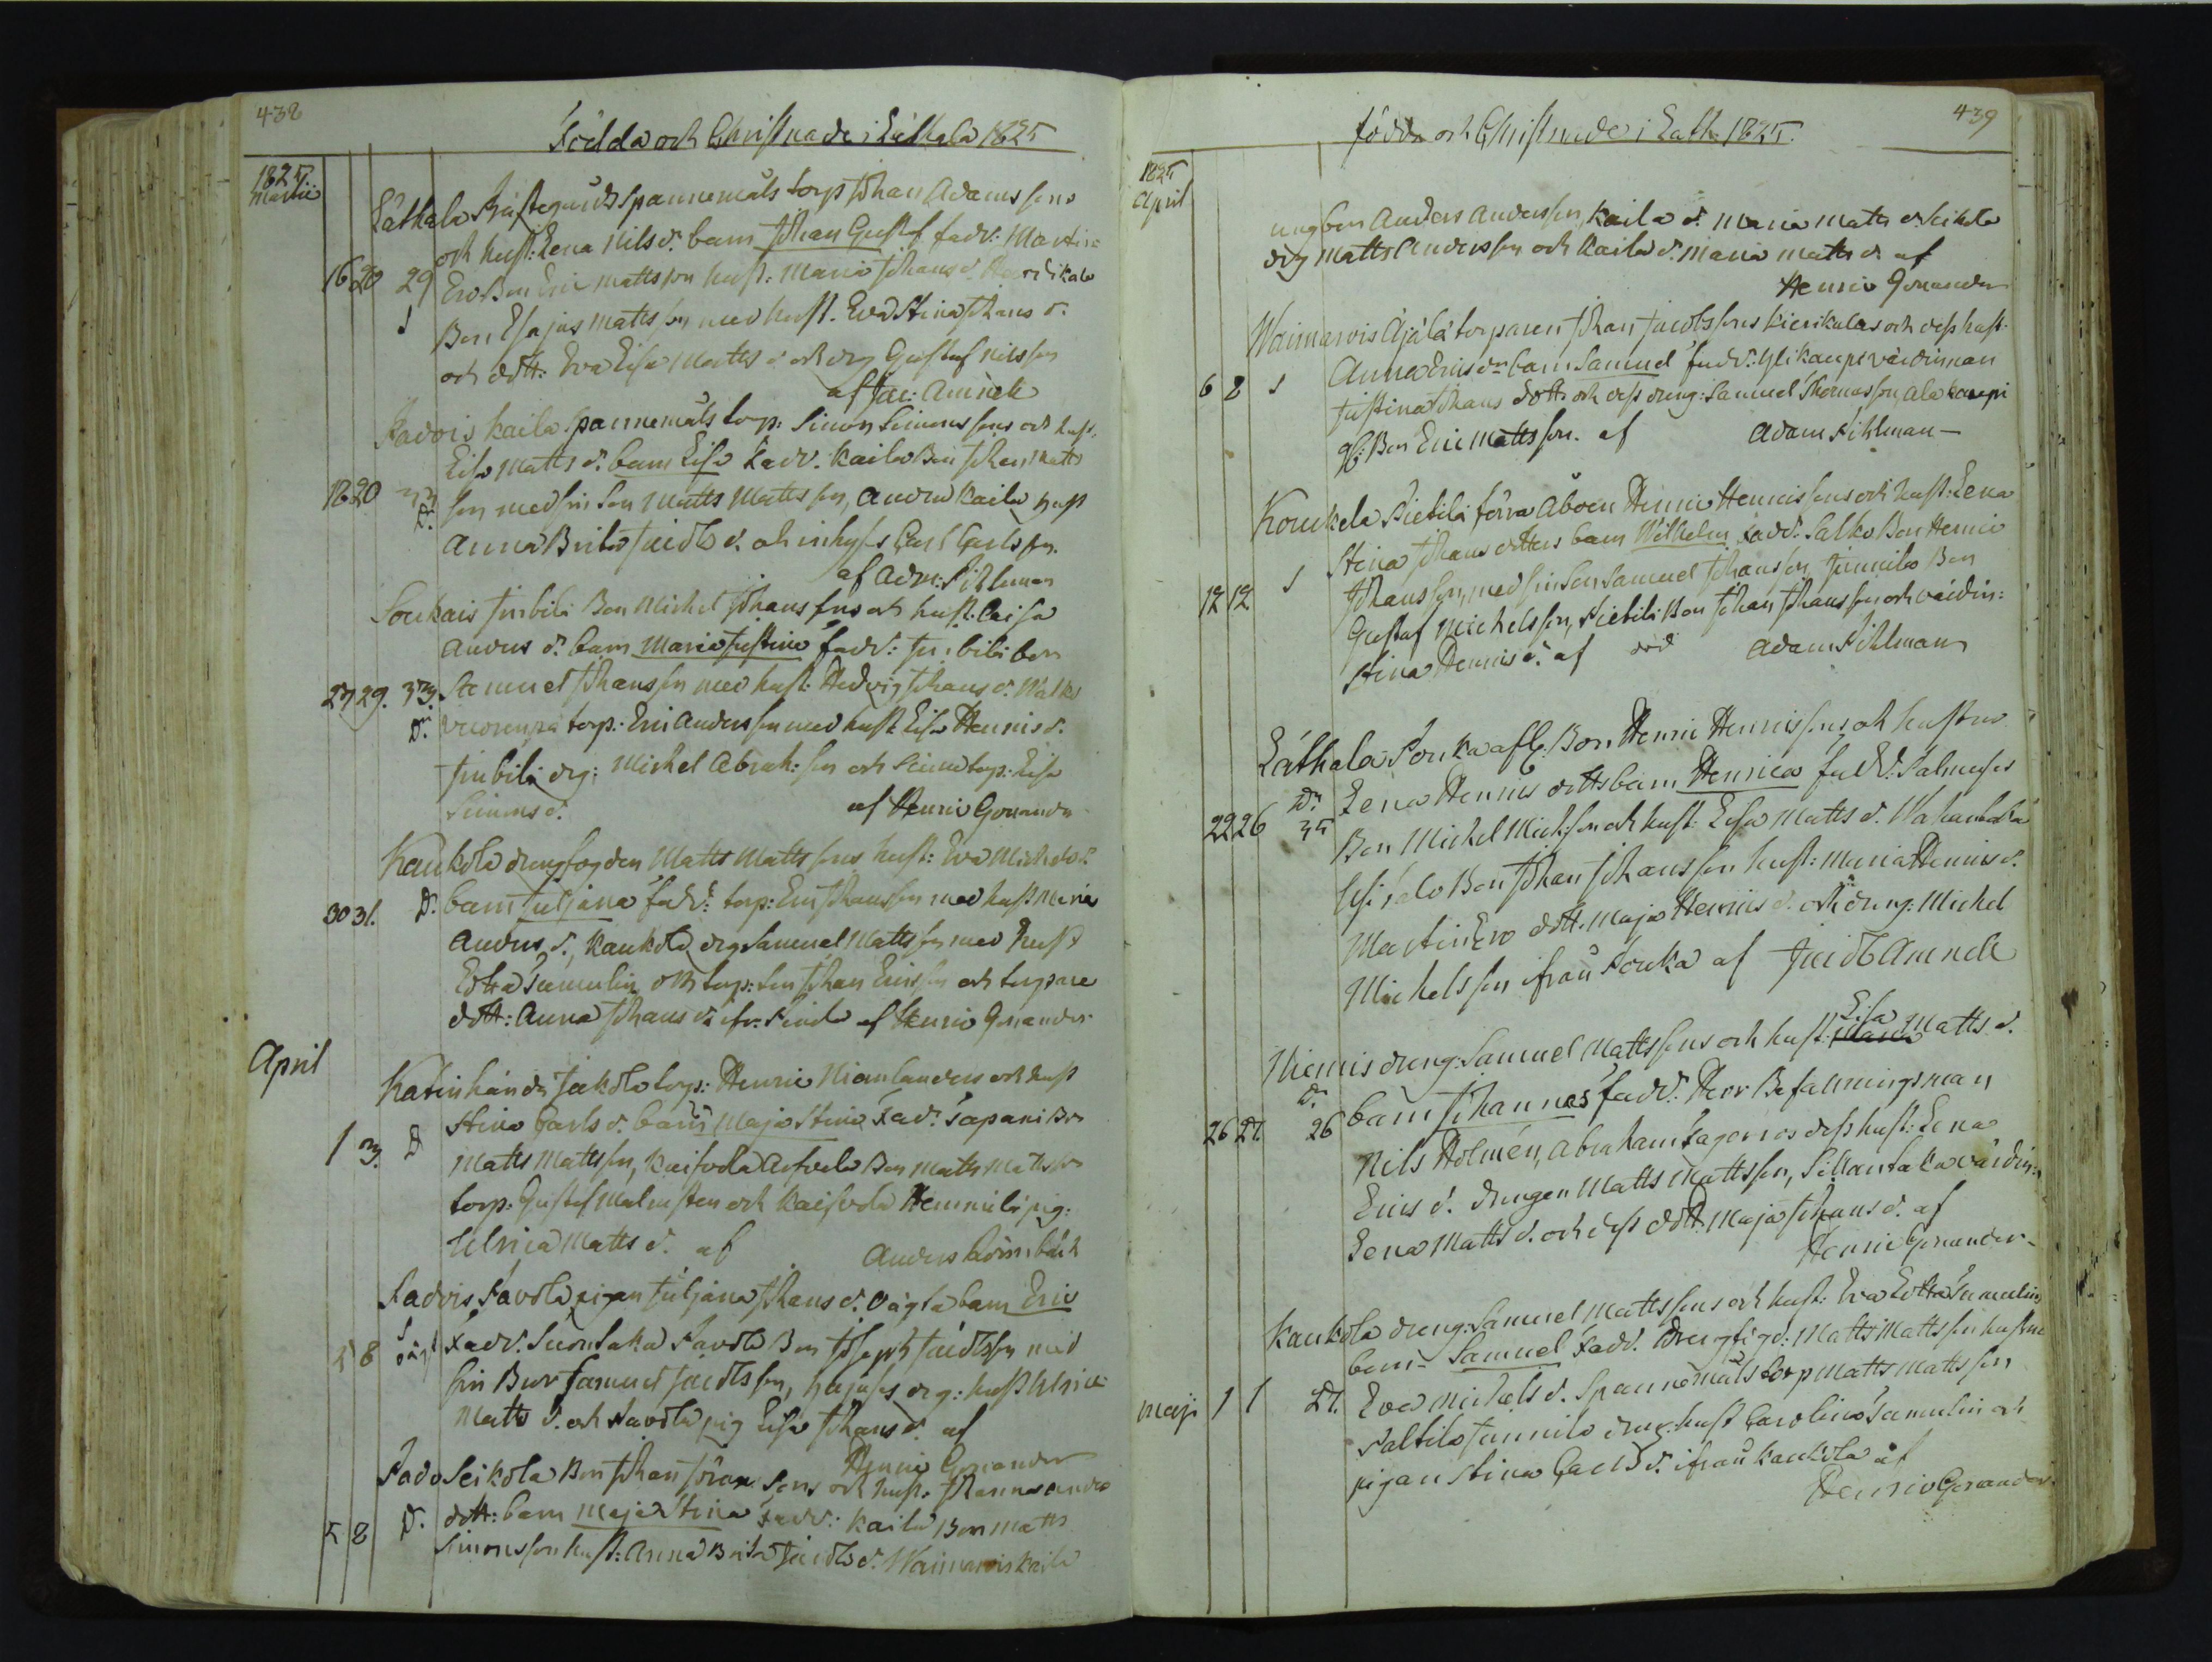 438
Födda och Christnade i Láthala 1825
1825
Martii
Láthala Prästegårds Spannemåls torp Johan Adamssons
och hust: Lena Nils d. barn Johan Gustaf fadd: Martin=
16 20 29 Ero Bon Eric Mattsson hust: Maria Johans d.
s Bon Esajas Mattsson med hust. Eva Stina Johans d.
och dott: Eva Lisa Matts d. och drg Gustaf Nilsson
af Jac: Amnell
kaila Spannemåls torp: Simon Simonssons och hust.
Lisa Matts d. barn Lisa fadd. Kaila Bon Johan Matts
18 20 son med sin Son Matts Mattsson, Andra Kaila hust
D. Anna Brita Jacobs d. och inhyses Carl Carlsson.
af Adm: Pihlman
Soukais Junbili Bon Michel Johanssons och hust. Caisa
Anders d. barn Maria Justina fadd: Junbili bon
27 29. 33. Samuel Johansson med hust: Hedvig Johans d.
Dr. torp: Eric Andersson med hust Lisa Henrics d.
Junbili drg: Michel Abrah: son och torp: Lisa
Simons d. af Henric Gonander
Kaukola drengfogden Matts Mattssons hust: Eva Michels d.
30 31. D. barn Juljana fadd: torp: Eric Johansson med hust Maria
Anders d., Kaukola drg Samuel Mattsson med hust
Lotta Samulin och torp: son Johan Ericsson och torpare
dott: Anna Johans d. af Henric Gonander
April
Jakola torp: Henric Niemlanders och hust
Stina Carls d. barn Maja Stina fad: Tapani Bon
1 3. D Matts Mattsson, Kaisvola Bon Matts Mattsson
torp: Gustaf Malmsten och Kaisvola Hemmilä pig:
Ulrica Matts d. af Anders
Sadvis Pavola pigan Juljana Johans d. oägta barn Eric
5 8 s fadd. Suontaka Pavola Bon Joseph Jacobsson med
sin Bror Samuel Jacobsson, drg: hust Ulrica
Matts d. och Pavola pig Lisa Johans d. af
Henric Gonander
Sado Seikola Bon Johan Sons och hust. Johanna Anders
5 8 D. dott: barn Maja Stina fadd: Kaila Bon Matts
Simonsson hust: Anna Brita Jacobs d. Waimaris Kaila
439
födda och Christnade i Lath. 1825.
1825
April
ung bon Anders Andersson, Kaila d. Maria Matts d. Seikola
drg Matts Andersson och Kaila d. Maria Matts d. af
Henric Gonander
Waimarois Äjälä torparen Johan Jacobssons Kierikalas och dess hust
Anna Erics dr barn Samuel fadd: Ylikaupi värdinnan
6 8 s Justina Johans dott och dess dreng: Samuel Thomasson, Ala kaupi
Bon Eric Mattsson. af Adam Pihlman
Koukela Pietilä förra Åboen Henric Henricssons och hust: Lena
Stina Johans dotters barn Wilhelm fadd: Salko Bon Henric
12 12 s Johansson, med sin Son Samuel Johansson, Junnila Bon
Gustaf Michelsson, Pietilä Bon Johan Johansson och värdin:
Stina Henrics d. af död Adam Pihlman
Láthala Pouka Bon Henric Henricssons och hustru
Dr. Lena Henrics dotts barn Henrica fadd:
22 26 35 Bon Michel Mich:son och hust: Lisa Matts d. Wahantaka
Bon Johan Johansson hust: Maria Henrics d.
Martin Ero dott. Maja Henrics d. och dreng: Michel
Michelsson ifrån Pouka af Jacob Amnell
Niemis dreng: Samuel Mattssons och hust: Lisa Matts d.
d. barn Johannes fadd: Herr Befallningsman
26 27. 26 Nils Holmén, Abraham Sagerros dess hust: Lena
Erics d. drengen Matts Mattsson, värdin:
Lena Matts d. och dess dott: Maja Johans d. af
Henric Gonander
Kaukola dreng: Samuel Mattssons och hust: Eva Lotta Samulin
barn Samuel fadd. Drengfogd: Matts Mattsson hustru
maji 1 1 27. Eva Michels d. Spannemåls torp Matts Mattsson
Paltila Junnila dreng hust Carolina Samulin och
pigan Stina Carls d. ifrån Kaukola af
Henric Gonander.